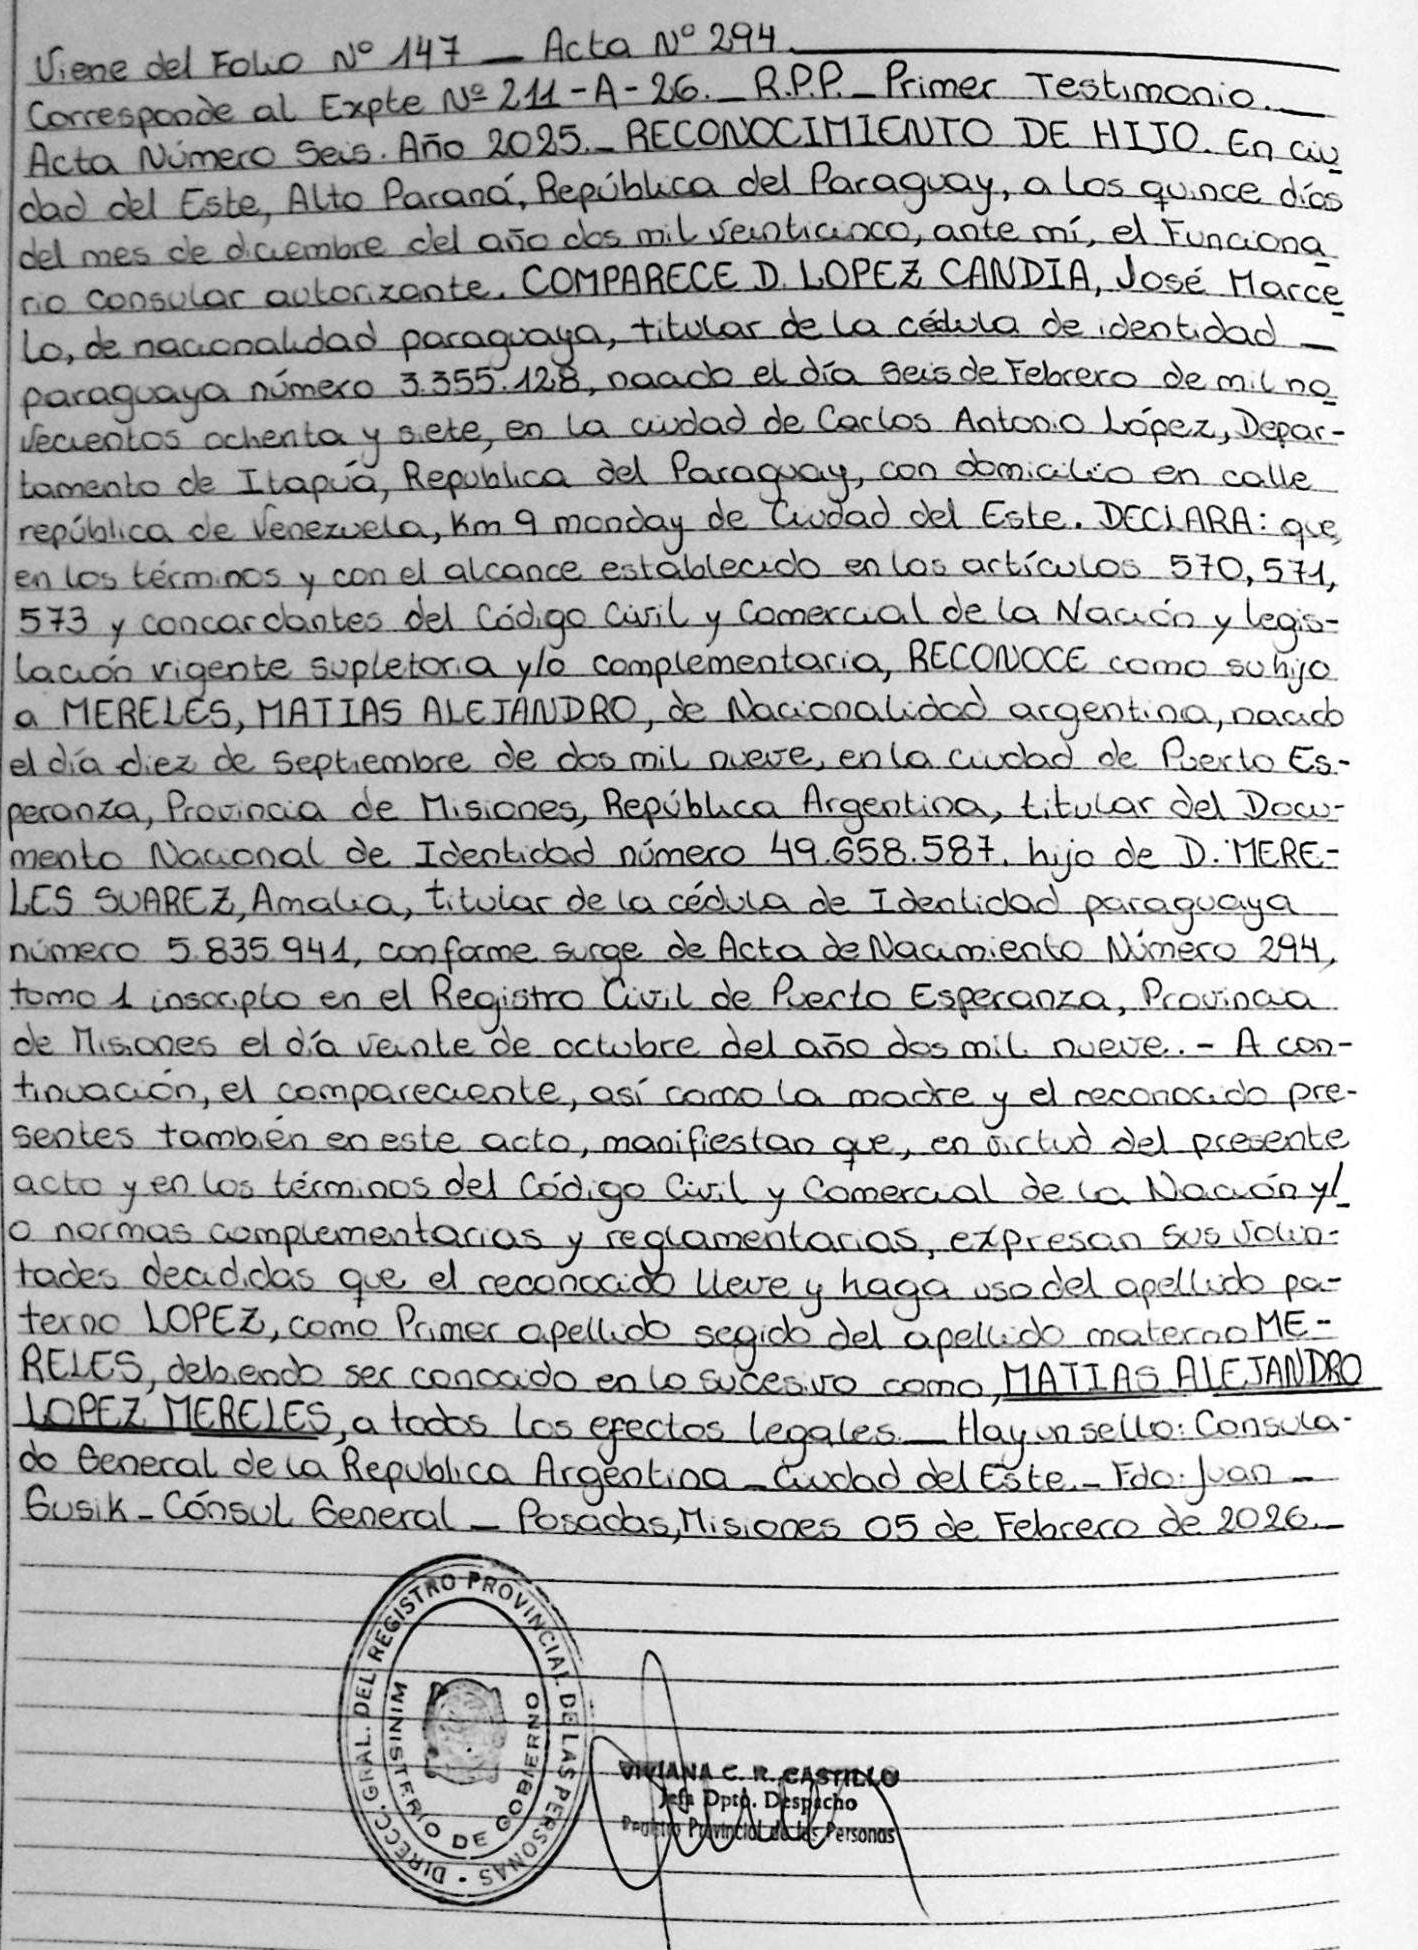 Viene del Folio Nº 147 _ Acta Nº 294.
Corresponde al Expte Nº 211-A-26._ R.P.P._ Primer Testimonio._
Acta Número Seis. Año 2025._ RECONOCIMIENTO DE HIJO. En ciu
dad del Este, Alto Paraná, República del Paraguay, a los quince días
del mes de diciembre del año dos mil veinticinco, ante mí, el Funciona
rio consular autorizante. COMPARECE D. LOPEZ CANDIA, José Marce
lo, de nacionalidad paraguaya, titular de la cédula de identidad _
paraguaya número 3.355.128, nacido el día seis de Febrero de mil no
vecientos ochenta y siete, en la ciudad de Carlos Antonio López, Depar-
tamento de Itapúa, Republica del Paraguay, con domicilio en calle
república de Venezuela, Km 9 monday de Ciudad del Este. DECLARA: que,
en los términos y con el alcance establecido en los artículos 570, 571,
573 y concordantes del Código Civil y Comercial de la Nación y legis-
lación vigente supletoria y/o complementaria, RECONOCE como su hijo
a MERELES, MATIAS ALEJANDRO, de Nacionalidad argentina, nacido
el día diez de Septiembre de dos mil nueve, en la ciudad de Puerto Es-
peranza, Provincia de Misiones, República Argentina, titular del Docu-
mento Nacional de Identidad número 49.658.587. hijo de D. MERE-
LES SUAREZ, Amalia, titular de la cédula de Identidad paraguaya
número 5.835.941, conforme surge de Acta de Nacimiento Número 294,
tomo 1 inscripto en el Registro Civil de Puerto Esperanza, Provincia
de Misiones el día veinte de octubre del año dos mil nueve. - A con-
tinuación, el compareciente, así como la madre y el reconocido pre-
sentes también en este acto, manifiestan que, en virtud del presente
acto y en los términos del Código Civil y Comercial de la Nación y/
o normas complementarias y reglamentarias, expresan sus volun-
tades decididas que el reconocido lleve y haga uso del apellido pa-
terno LOPEZ, como Primer apellido segido del apellido materno ME-
RELES, debiendo ser conocido en lo sucesivo como, MATIAS ALEJANDRO
LOPEZ MERELES, a todos los efectos legales._ Hay un sello: Consula-
do General de la Republica Argentina _ Ciudad del Este._ Fdo: Juan _
Gusik _ Cónsul General _ Posadas, Misiones 05 de Febrero de 2026._
DIRECC. GRAL. DEL REGISTRO PROVINCIAL DE LAS PERSONAS
MINISTERIO DE GOBIERNO
VIVIANA C. R. CASTILLO
Jefa Dpto. Despacho
Registro Provincial de las Personas